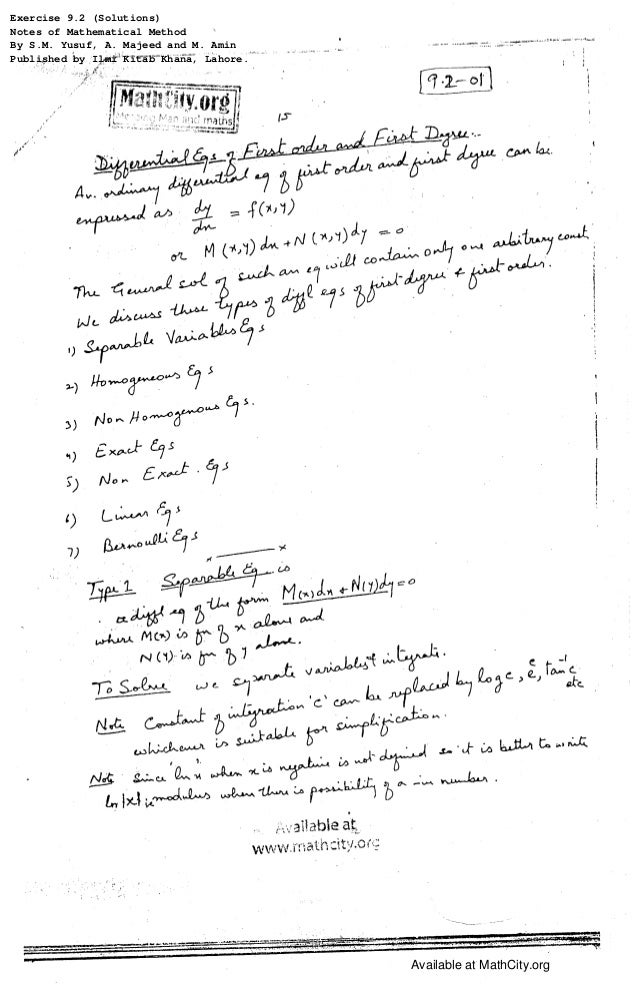 Exercise 9.2 (Solutions)
Notes of Mathematical Method
By S.M. Yusuf, A. Majeed and M. Amin
Published by Ilmi Kitab Khana, Lahore.
9.2-01
MathCity.org
Merging Man and maths
15
Differential Eqs of First order and First Degree:-
An ordinary differential eq of first order and first degree can be
expressed as dy/dx = f(x,y)
or M(x,y)dx + N(x,y)dy = 0
The General sol of such an eq will contain only one arbitrary const.
We discuss these types of diffl eqs of first degree & first order.
1) Separable Variables Eqs
2) Homogeneous Eqs
3) Non Homogenous Eqs.
4) Exact Eqs
5) Non Exact. Eqs
6) Linear Eqs
7) Bernoulli Eqs
x——x
Type 1 Separable Eq. is
a diffl eq of the form M(x)dx + N(y)dy = 0
where M(x) is fn of x alone and
N(y) is fn of y alone.
To Solve we separate variables & integrate.
Note Constant of integration 'c' can be replaced by log c, e^c, tan⁻¹c etc
whichever is suitable for simplification.
Note Since 'ln x' when x is negative is not defined so it is better to write
ln|x| i.e. modulus when there is possibility of a -ive number.
Available at
www.mathcity.org
Available at MathCity.org